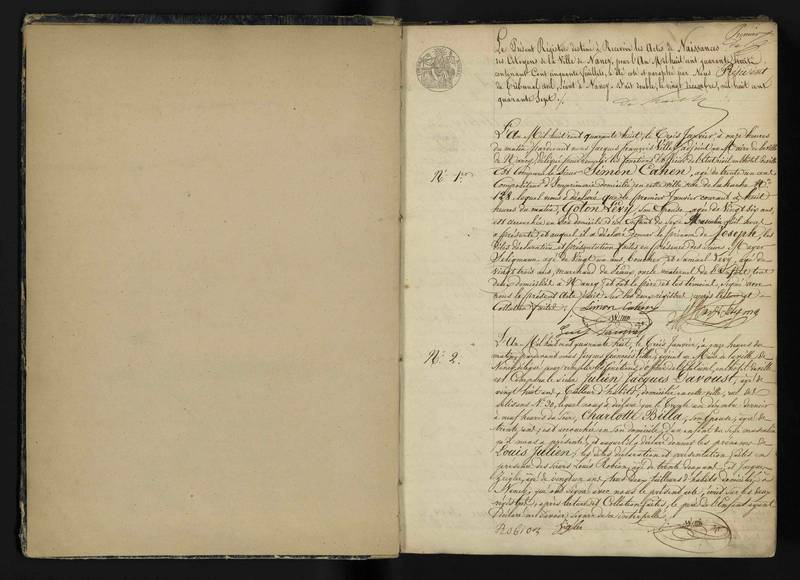 Premier
Le Présent Registre destiné à Recevoir les Actes de Naissances
des Citoyens de la Ville de Nancy, pour l'An Mil huit cent quarante huit
contenant Cent cinquante feuillets, a été coté et paraphé par Nous Président
du Tribunal civil, séant à Nancy. Fait double, le vingt décembre, mil huit cent
quarante Sept ./.
L'An Mil huit cent quarante huit, le Trois Janvier, à onze heures
du matin, pardevant nous Jacques François Ville, adjoint au Maire de la ville
de Nancy, délégué pour remplir les fonctions d'officier de l'état civil, en l'hôtel de ville
N° 1er
Est Comparu le Sieur Simon Cahen, âgé de trente un ans
Compositeur d'Imprimerie domicilié en cette ville, rue de la hache N°
128, lequel nous a déclaré que le premier Janvier courant à huit
heures du matin, Goton Lévy, Son Epouse, âgée de Vingt Six ans,
est accouchée en Son domicile d'un Enfant du Sexe Masculin qu'il nous
a présenté, et auquel il a déclaré donner le prénom de Joseph, les
dites déclaration et présentation faites en présence des Sieurs Mayer
Seligmann, âgé de vingt un ans, Boucher, et Samuel Lévy, âgé de
vingt trois ans, marchand de Peaux, oncle maternel de l'Enfant, tous
deux domiciliés à Nancy, et ont le père et les témoins, signé avec
nous le présent Acte, fait sur les deux registres, après lecture et
Collation faites ./. Simon Cahen
N° 2.
L'An Mil huit cent quarante huit, le Trois Janvier, à onze heures du
matin, pardevant nous Jacques François Ville, adjoint au Maire de la ville de
Nancy, délégué pour remplir les fonctions d'officier de l'état civil, en l'hôtel de ville
est Comparu le Sieur Julien Jacques Davoust, âgé de
vingt huit ans, Tailleur d'habits, domicilié en cette ville, rue des
Artisans N° 30, lequel nous a déclaré que le trente un décembre dernier
à neuf heures du Soir, Charlotte Billa, Son Epouse, âgée de
trente ans, est accouchée en Son domicile d'un enfant du Sexe masculin
qu'il nous a présenté, et auquel il a déclaré donner les prénoms de
Louis Julien, les dites déclaration et présentation faites en
présence des Sieurs Louis Robion, âgé de trente ans, et Jacques
Zigler, âgé de vingt un ans, tous deux tailleurs d'habits domiciliés à
Nancy, qui ont signé avec nous le présent acte, inscrit sur les deux
registres, après lecture et Collation faites, le père de l'Enfant ayant
déclaré ne Savoir Signer de ce interpellé
Robion Zigler